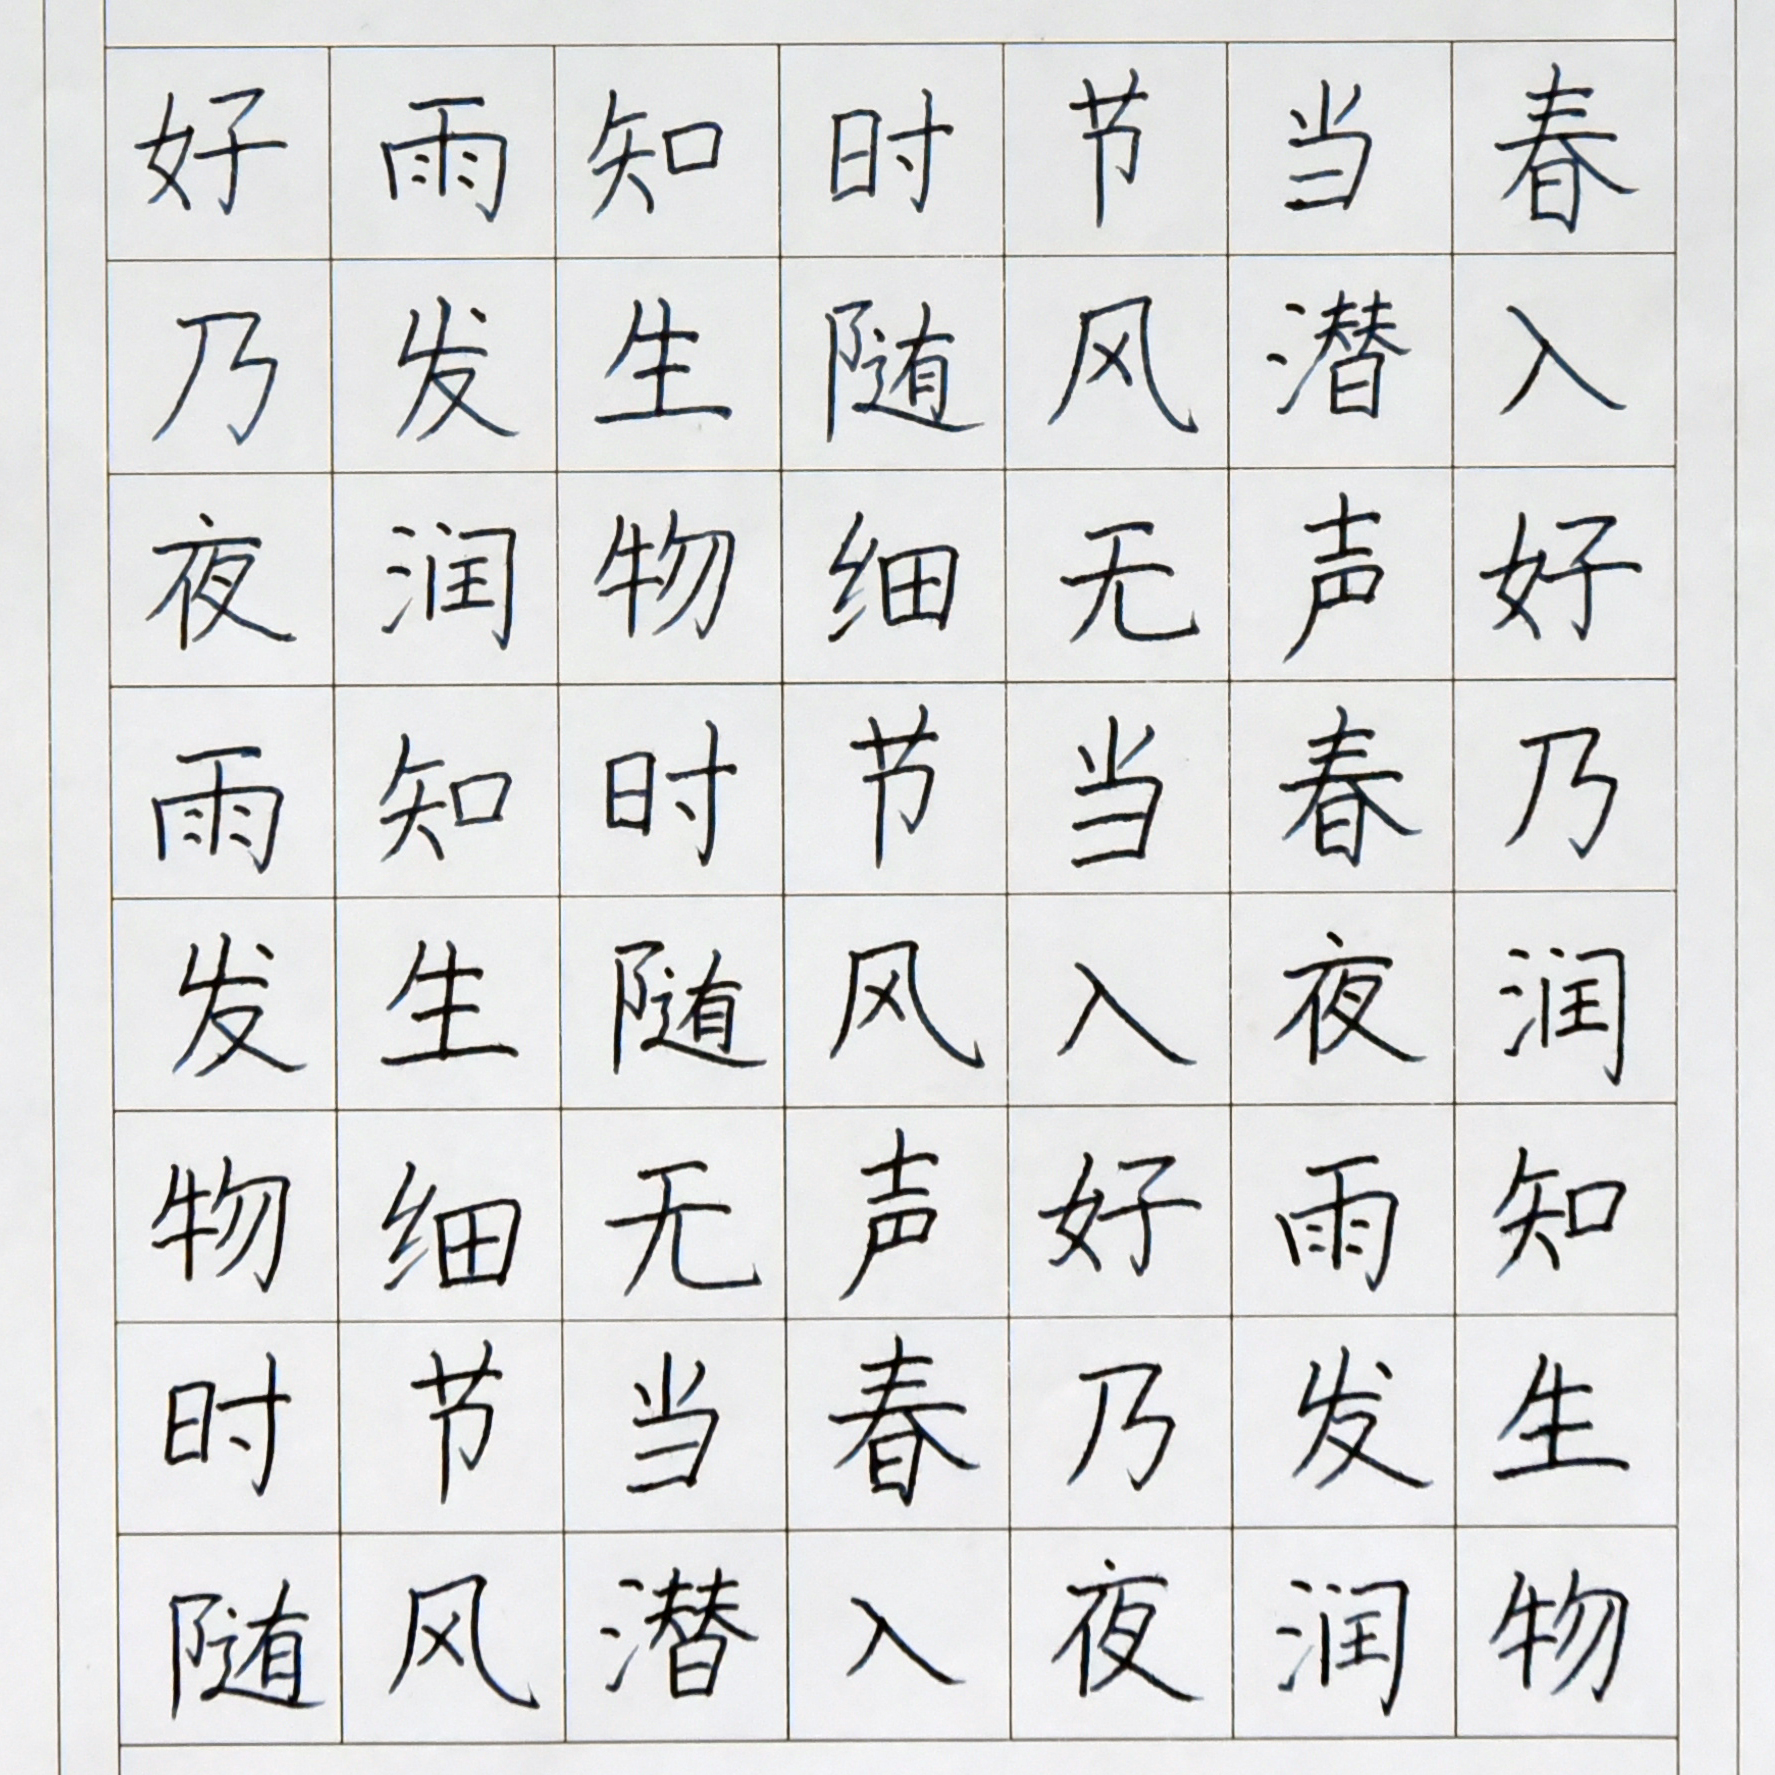 好雨知时节当春
乃发生随风潜入
夜润物细无声好
雨知时节当春乃
发生随风入夜润
物细无声好雨知
时节当春乃发生
随风潜入夜润物